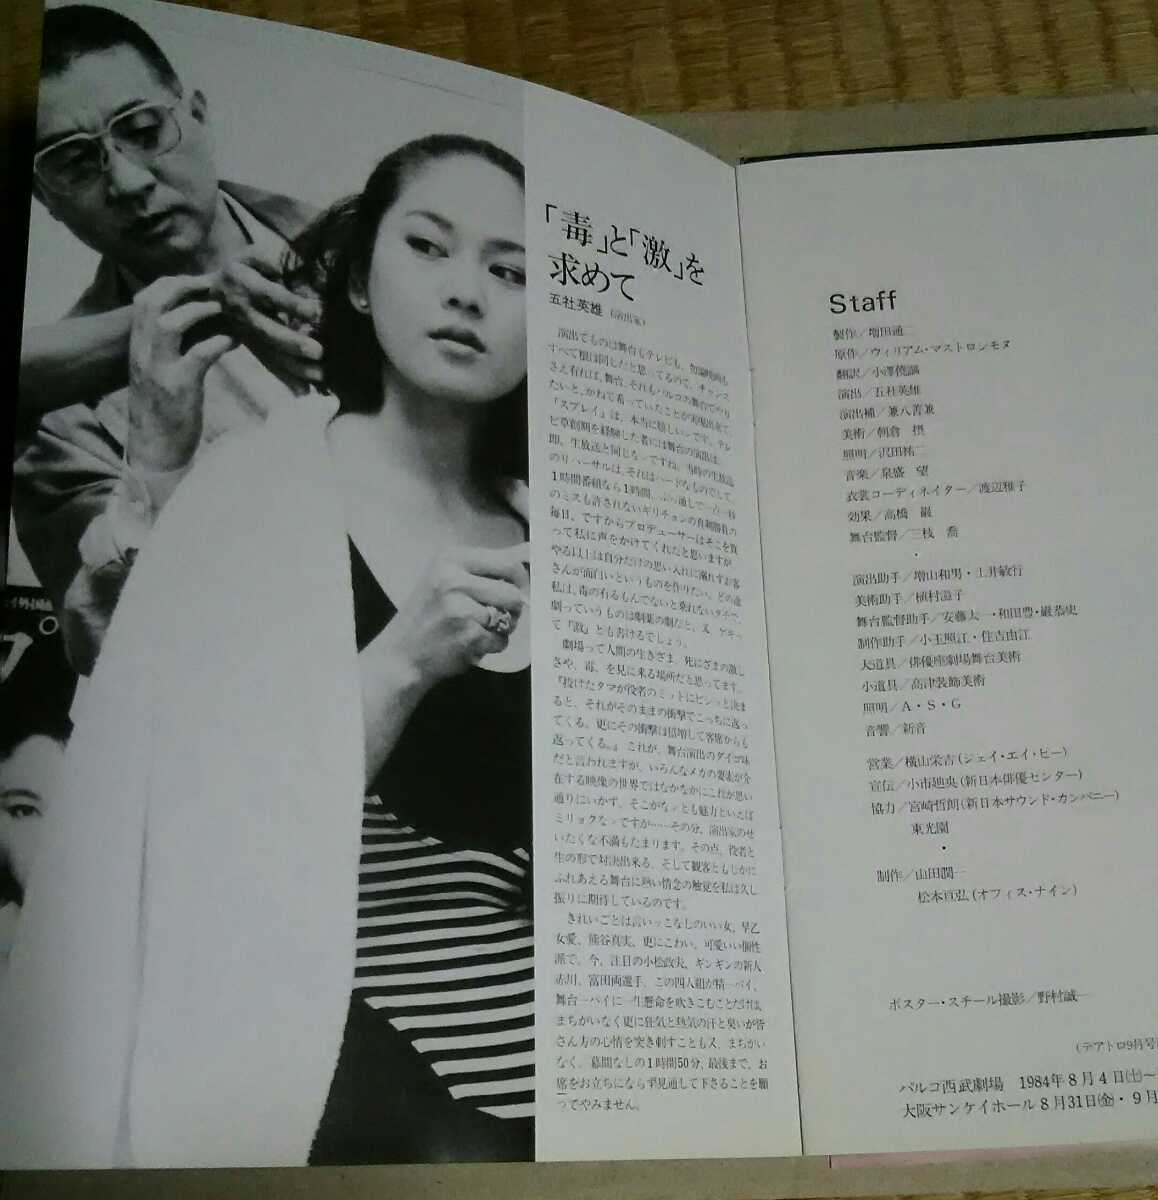 「毒」と「激」を
求めて
五社英雄(演出家)
演出てものは舞台もテレビも、勿論映画も
すべて根は同じだと思ってるので、チャンス
さえ有れば、舞台、それもパルコの舞台でやり
たいと、かねて希っていたことが実現出来て、
『スプレイ』は、本当に嬉しいっです。テレ
ビ草創期を経験した者には舞台の演出は、
即、生放送と同じなンですね。当時の生放送
のリハーサルは、それはハードなものでして、
1時間番組なら1時間、ぶっ通しで一点一秒
のミスも許されないギリチョンの真剣勝負の
毎日。ですからプロデューサーはそこを買
って私に声をかけてくれたと思いますが
やる以上は自分だけの思い入れに溺れずお客
さんが面白いというものを作りたい。どの道
私は、毒の有るもんでないと乗れないタチで、
劇っていうものは劇薬の劇だと、又、ゲキっ
て「激」とも書けるでしょう。
劇場って人間の生きざま、死にざまの激し
さや、毒、を見に来る場所だと思ってます。
『投げたタマが役者のミットにビシッと決ま
ると、それがそのままの衝撃でこっちに返っ
てくる。更にその衝撃は倍増して客席からも
返ってくる。』これが、舞台演出のダイゴ味
だと言われますが、いろんなメカの要素が介
在する映像の世界ではなかなかにこれが思い
通りにいかず、そこがなンとも魅力といえば
ミリョクなンですが……その分、演出家のぜ
いたくな不満もたまります。その点、役者と
生の形で対決出来る、そして観客ともじかに
ふれあえる舞台に熱い情念の触覚を私は久し
振りに期待しているのです。
きれいごとは言いっこなしのいい女、早乙
女愛、熊谷真実、更にこわい、可愛いい個性
派で、今、注目の小松政夫、ギンギンの新人
古川、富田両選手、この四人組が精一パイ、
舞台一パイに一生懸命を吹きこむことだけは、
まちがいなく更に狂気と熱気の汗と臭いが皆
さん方の心情を突き刺すことも又、まちがい
なく、幕間なしの1時間50分、最後まで、お
席をお立ちにならず見通して下さることを願
ってやみません。
Staff
製作/増田通二
原作/ウィリアム・マストロシモヌ
翻訳/小澤僥謳
演出/五社英雄
演出補/兼八善兼
美術/朝倉 摂
照明/沢田祐二
音楽/泉盛 望
衣裳コーディネイター/渡辺雅子
効果/高橋 巌
舞台監督/三枝 喬
・
演出助手/増山和男・土井敏行
美術助手/植村滋子
舞台監督助手/安藤太一・和田豊・巌恭史
制作助手/小玉照江・住吉由江
大道具/俳優座劇場舞台美術
小道具/高津装飾美術
照明/A・S・G
音響/新音
営業/横山栄吉(ジェイ・エイ・ピー)
宣伝/小市廸央(新日本俳優センター)
協力/宮崎哲朗(新日本サウンド・カンパニー)
東光園
・
制作/山田潤一
松本亘弘(オフィス・ナイン)
ポスター・スチール撮影/野村誠一
(テアトロ9月号
パルコ西武劇場 1984年8月4日(土)〜
大阪サンケイホール8月31日(金)・9月